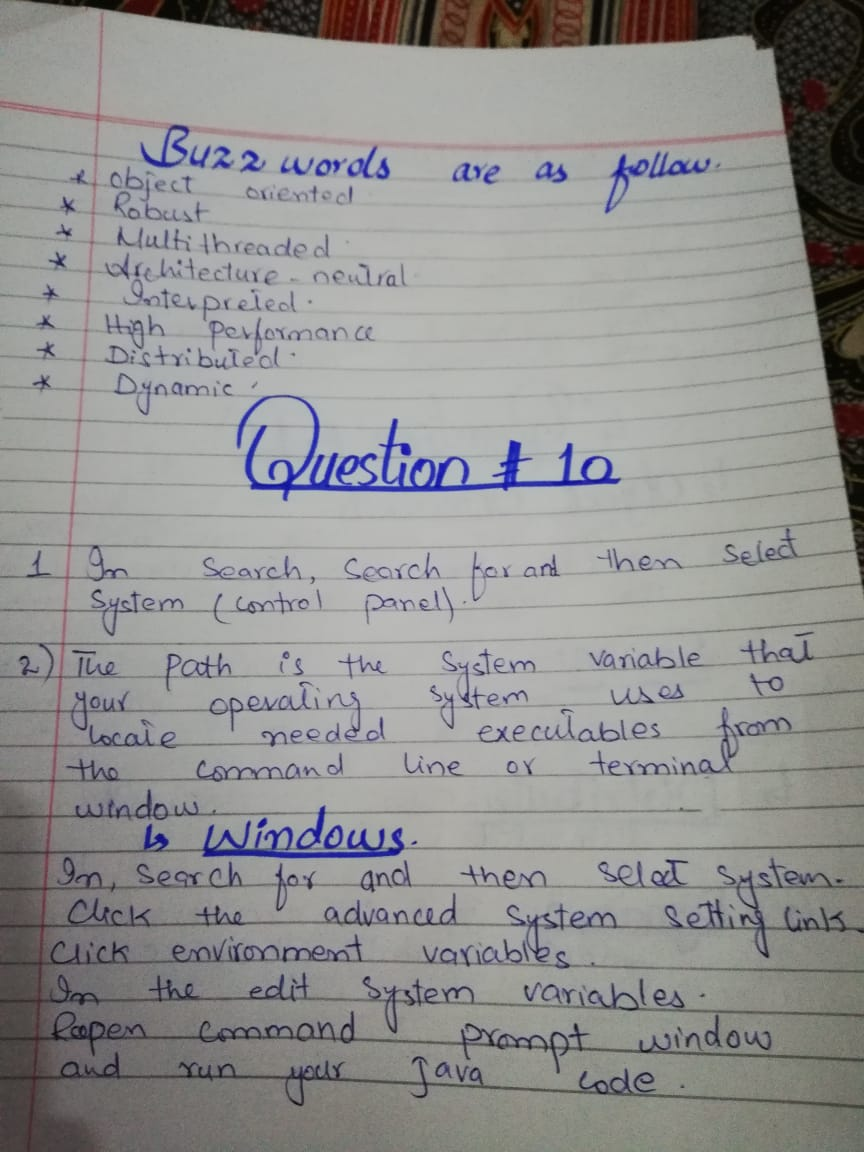 Buzz words are as follow.
* object oriented
* Robust
* Multithreaded
* Architecture-neutral
* Interpreted.
* High Performance
* Distributed.
* Dynamic
Question # 10
1 In Search, Search for and then Select
System (control panel).
2) The path is the System variable that
your operating system uses to
locate needed executables from
the command line or terminal
window.
↳ Windows.
In, Search for and then select system.
Click the advanced system setting links.
Click environment variables.
In the edit System variables.
Reopen command prompt window
and run your Java code.